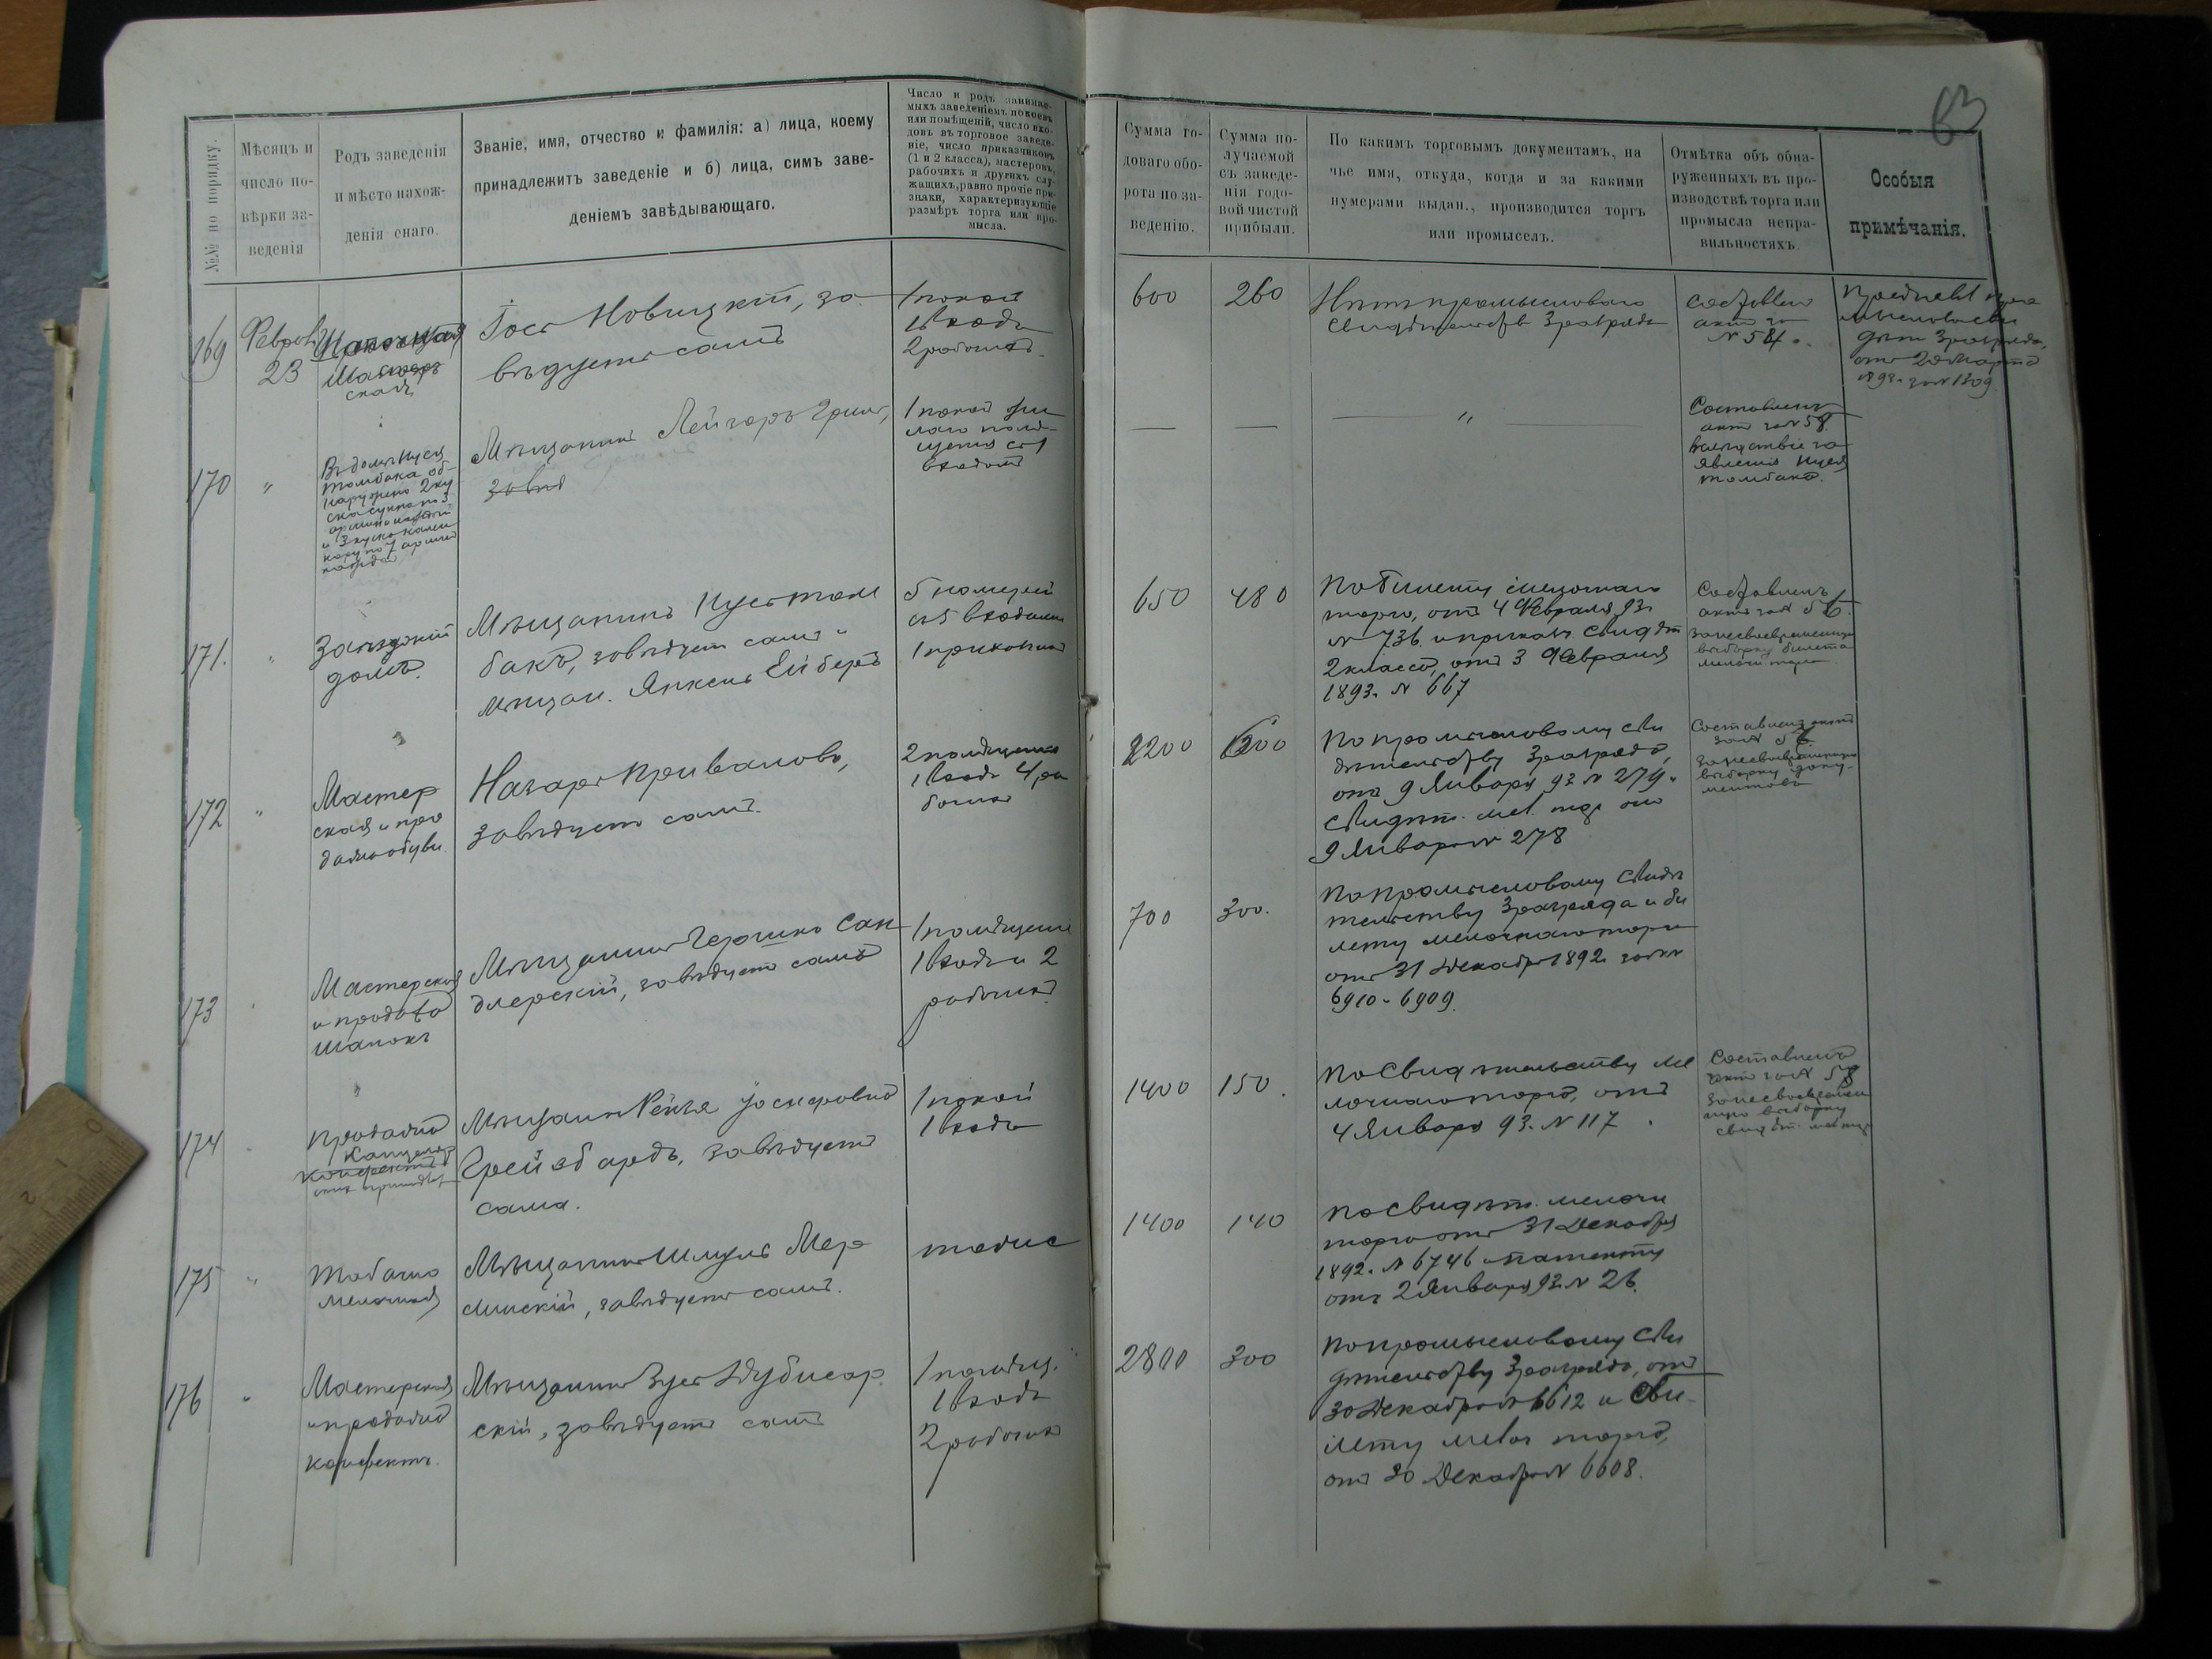 63
№№ по порядку.
Мѣсяцъ и
число по-
вѣрки за-
веденія
Родъ заведенія
и мѣсто нахож-
денія онаго.
Званіе, имя, отчество и фамилія: а) лица, коему
принадлежитъ заведеніе и б) лица, симъ заве-
деніемъ завѣдывающаго.
Число и родъ занимае-
мыхъ заведеніемъ покоевъ
или помѣщеній, число вхо-
довъ въ торговое заведе-
ніе, число приказчиковъ
(1 и 2 класса), мастеровъ,
рабочихъ и другихъ слу-
жащихъ, равно прочіе при-
знаки, характеризующіе
размѣръ торга или про-
мысла.
Сумма го-
доваго обо-
рота по за-
веденію.
Сумма по-
лучаемой
съ заведе-
нія годо-
вой чистой
прибыли.
По какимъ торговымъ документамъ, на
чье имя, откуда, когда и за какими
нумерами выдан., производится торгъ
или промыселъ.
Отмѣтка объ обна-
руженныхъ въ про-
изводствѣ торга или
промысла непра-
вильностяхъ.
Особыя
примѣчанія.
169
Феврал
23
Мастер
ская
Новицкій, за
вѣдуетъ самъ
1 покой
1 входъ
2 рабочихъ
600
260
Нѣтъ промысловаго
свидѣтельства 3 разряда
Составленъ
актъ за
№ 54.
промы
дѣт. 3 разряда,
отъ 2 Марта
1893. за № 1309
170
"
Въ домѣ Нуся
Томбака об-
наружено 2 ку
ска сукна по 3
аршина каждый
и 3 куска
по 7 аршин
каждый
Мѣщанинъ Лейзеръ
завѣд
1 покой жи
лаго помѣ-
щенія съ 1
входомъ
—
—
"
Составленъ
актъ за № 58
вслѣдствіе за
явленія Нуся
Томбака.
171.
"
Заѣзжій
домъ.
Мѣщанинъ Нусь Том
бакъ, завѣдуетъ самъ и
мѣщан. Янкель Ейберъ
5 номерей
съ 5 входами
1 приказчикъ
650
480
По билету мелочнаго
торга, отъ 4 Февраля 93.
№ 736. и приказч. свидѣт
2 класса, отъ 3 Февраля
1893. № 667
Составленъ
актъ за № 56.
за несвоевременную
выборку билета
172
"
Мастер
ская и про
дажа обуви.
Назаръ Приваловъ,
завѣдуетъ самъ.
2 помѣщенія
1 входъ 4 ра
бочихъ
2200
600
По промысловому сви
дѣтельству 3 разряда,
отъ 9 Января 93 № 279 и
свидѣт. мел. отъ
9 Января № 278
Составленъ актъ
за № 56
за несвоевременную
выборку доку-
ментовъ
173
Мастерская
и продажа
шапокъ
Мѣщанинъ Гершко Сан
длерскій, завѣдуетъ самъ
1 помѣщеніе
1 входъ и 2
рабочихъ
700
300.
По промысловому свидѣ
тельству 3 разряда и би
лету мелочнаго торга
отъ 31 Декабря 1892. за №№
6910 - 6909.
174
Продажа
Мѣщанка Рейзя Іосифовна
Грейзбардъ, завѣдуетъ
сама.
1 покой
1 входъ
1400
150.
По свидѣтельству ме
лочнаго торга, отъ
4 Января 93. № 117.
Составленъ
актъ за № 58
за несвоевремен
ную выборку
175
"
Табачно
мелочная
Мѣщанинъ Шмуль Мер
линскій, завѣдуетъ самъ.
тоже
1400
140
По свидѣт. мелочн
торга отъ 31 Декабря
1892. № 6746 и патенту
отъ 2 Января 93. № 26.
176
"
Мастерская
и продажа
конфектъ.
Мѣщанинъ Зусь Дубисар
скій, завѣдуетъ самъ
1 помѣщ.
1 входъ
2 рабочихъ
2800
300
По промысловому сви
дѣтельству 3 разряда, отъ
30 Декабря № 6612 и
лету мелоч торга,
отъ 30 Декабря № 6608.